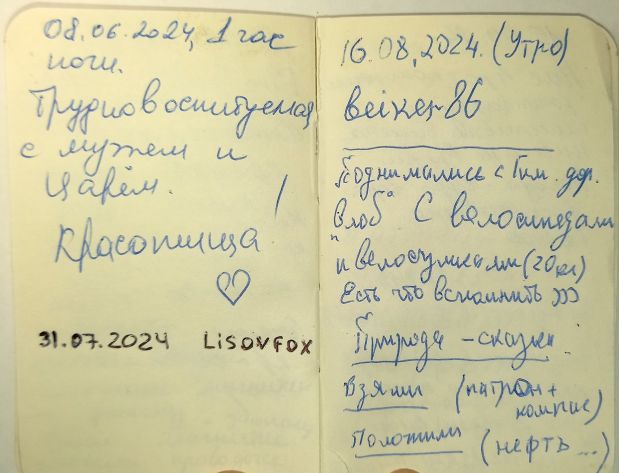 08.06.2024, 1 час
ночи.
Трудновоспитуемая
с мужем и
Царём.
Красотища!
31.07.2024 LiSOVFOX
16.08.2024. (Утро)
Beiker-86
Поднимались с Гим. дор.
"в лоб" С велосипедами
и велосумками (20кг)
Есть что вспомнить )))
Природа - сказка.
Взяли (патрон +
компас)
Положили (нефть...)